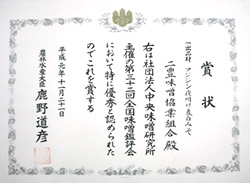 賞状
「出品財 フジジン夜明け麦白みそ」
二豊味噌協業組合 殿
右は社団法人中央味噌研究所
主催の第三十二回全国味噌鑑評会
において特に優秀と認められた
のでこれを賞する
平成元年十一月二十一日
農林水産大臣 鹿野道彦